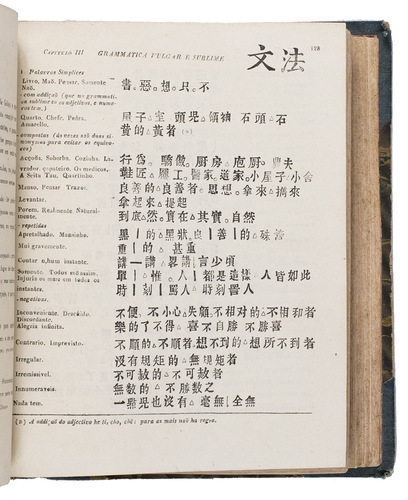 CAPITULO III GRAMMATICA VULGAR E SUBLIME 文法 128
1 Palavras Simplices
Livro, Mao, Pensar, Somente 書。惡。想。只。不
Naõ.
- com addiçaõ (que na grammati-
ca sublime so os adjectivos, e nume-
ros tem.)
Quarto, Chefe, Pedra, 屋子△室 頭兒△領袖 石頭△石
Amarello. 黃的△黃者 (a)
compostas (ás vezes saõ duas si-
nonymas para evitar os equivo-
cos)
Acçoẽs, Soberba, Cozinha, La- 行爲。驕傲。厨房△庖厨。農夫
vrador, Çapateiro, Os medicos. 鞋匠△履工。醫家。道家。小屋子△小舍
A Seita Tau, Quartinho.
Manso, Pensar Trazer. 良善的△良善者。思想。拿來△摛來
Levantar. 拿起來△提起
Porem. Realmente Natural- 到底△然。實在△其實。自然
mente.
- repetidas
Apretalhado. Mansinho. 黑丨的△黑狀。良丨善丨的△
Mui gravemente. 重丨的△甚重
Contar o,hum instante. 講一講△畧講。言少頃
Somente. Todos saõ assim. 單丨△惟。人丨都是這樣△人皆如此
Injuria os mais em todos os 時丨刻丨罵人△時刻詈人
instantes.
- negativas.
Inconveniente. Descuido. 不便。不小心△失顧。不相對的△不相和者
Discordante.
Alegria infinita. 樂的了不得△喜不自勝
Contrario, Imprevisto. 不順的△不順者。想不到的△想所不到者
Irregular. 沒有規矩的△無規矩者
Irremissivel. 不可赦的△不可赦者
Innumeraveis. 無數的△不勝數之
Nada tem. 一點兒也沒有△毫無丨全無
(a) A addiçaõ do adjectivo he ti, cho, chi: para os mais naõ ha regra.